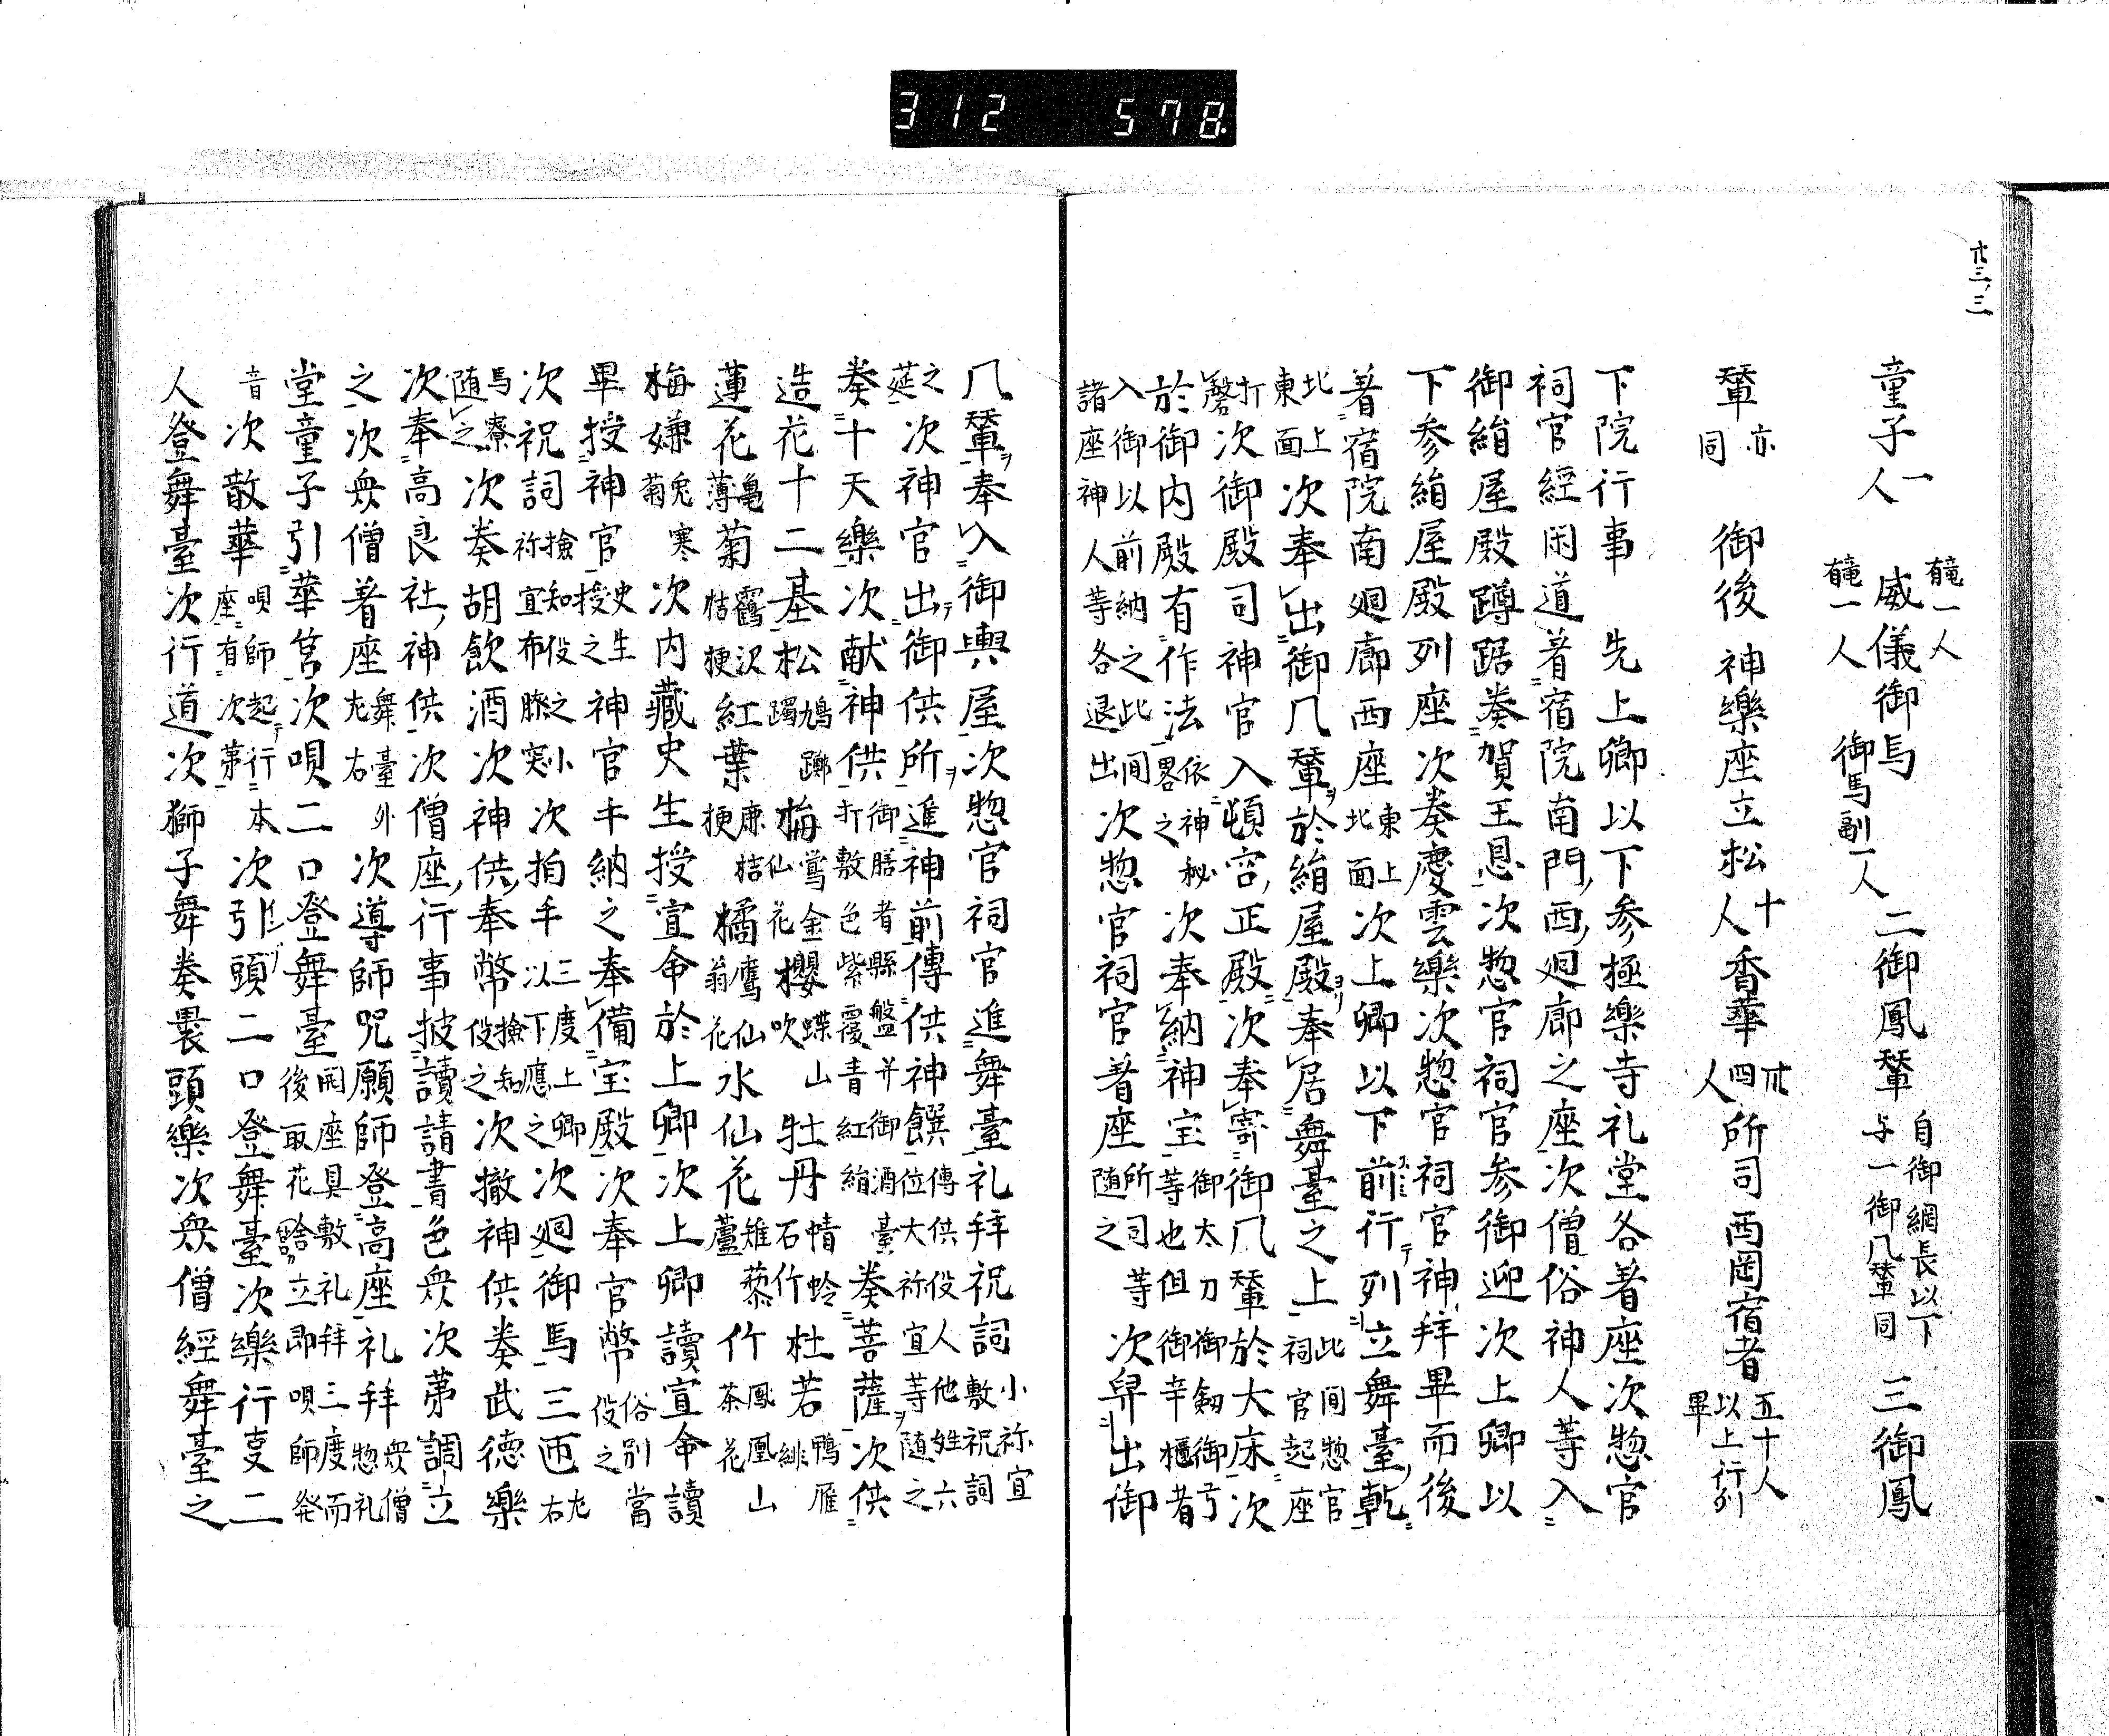 312 578
廿三ノ三
童子一人 威儀御馬有竜一人有竜一人 御馬副一人 二御鳳輦自御綱長以下与一御凡輦同 三御鳳
輦亦同 御後 神樂座立松十人 香華廿四人 所司 西岡宿者五十人以上行列畢
下院行事 先上卿以下参極樂寺礼堂各着座次惣官
祠官經閑道着宿院南門西廻廊之座次僧俗神人等入
御絹屋殿蹲踞奏賀王恩次惣官祠官参御迎次上卿以
下参絹屋殿列座次奏慶雲樂次惣官祠官神拜畢而後
着宿院南廻廊西座東上北面次上卿以下前行テ列立舞臺乾
北上東面次奉出御凡輦ヲ於絹屋殿ヨリ奉居舞臺之上此間惣官祠官起座
打磬次御殿司神官入頓宮正殿次奉寄御凡輦於大床次
於御内殿有作法依神秘畧之次奉納神宝御太刀御劔御弓等也但御辛櫃者
入御以前納之此間諸座神人等各退出次惣官祠官着座所司等随之次舁出御
凡輦ヲ奉入御輿屋次惣官祠官進舞臺礼拜祝詞小祢宜敷祝詞
之莚次神官出テ御供所ヲ進神前傳供神饌傳供役人他姓六位大祢宜等随之
奏十天樂次献神供御膳者縣盤并御酒臺打敷色紫覆青紅絹奏菩薩ヲ次供
造花十二基松鳩躑躅梅鶯金仙花櫻蝶山吹牡丹蜻蛉石竹杜若鴨雁緋
蓮花亀薄菊鶴沢桔梗紅葉鹿桔梗橘鷹仙翁花水仙花雉藜蘆竹鳳凰山茶花
梅嫌兎寒菊次内藏史生授宣命於上卿次上卿讀宣命讀
畢授神官史生授之神官手納之奉備宝殿次奉官幣俗別當役之
次祝詞撿知役之小祢宜布膝突次拍手三度上卿以下應之次廻御馬三迊左右
馬寮随之次奏胡飲酒次神供奉幣撿知役之次撤神供奏武徳樂
次奉高良社神供次僧座行事披讀請書色衆次第調立
之次衆僧着座舞臺外左右次導師咒願師登高座礼拜衆僧惣礼
堂童子引華筥次唄二口登舞臺開座具敷礼拜三度而後取花筥立即唄師発
音次散華唄師起テ行座有次第本次引頭二口登舞臺次樂行叓二
人登舞臺次行道次獅子舞奏畏頭樂次衆僧經舞臺之